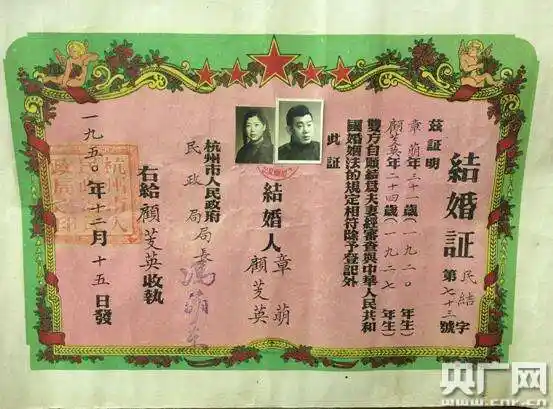 結婚証
民結字
第七十三號
茲証明
章萌年三十一歲(一九二〇年生)
顧芟英年二十四歲(一九二七年生)
雙方自願結爲夫妻經審查與中華人民共和
國婚姻法的規定相符除予登記外
此証
結婚人
章萌
顧芟英
杭州市人民政府
民政局局長
右給顧芟英收執
一九五〇年十二月十五日發
央广网
www.cnr.cn